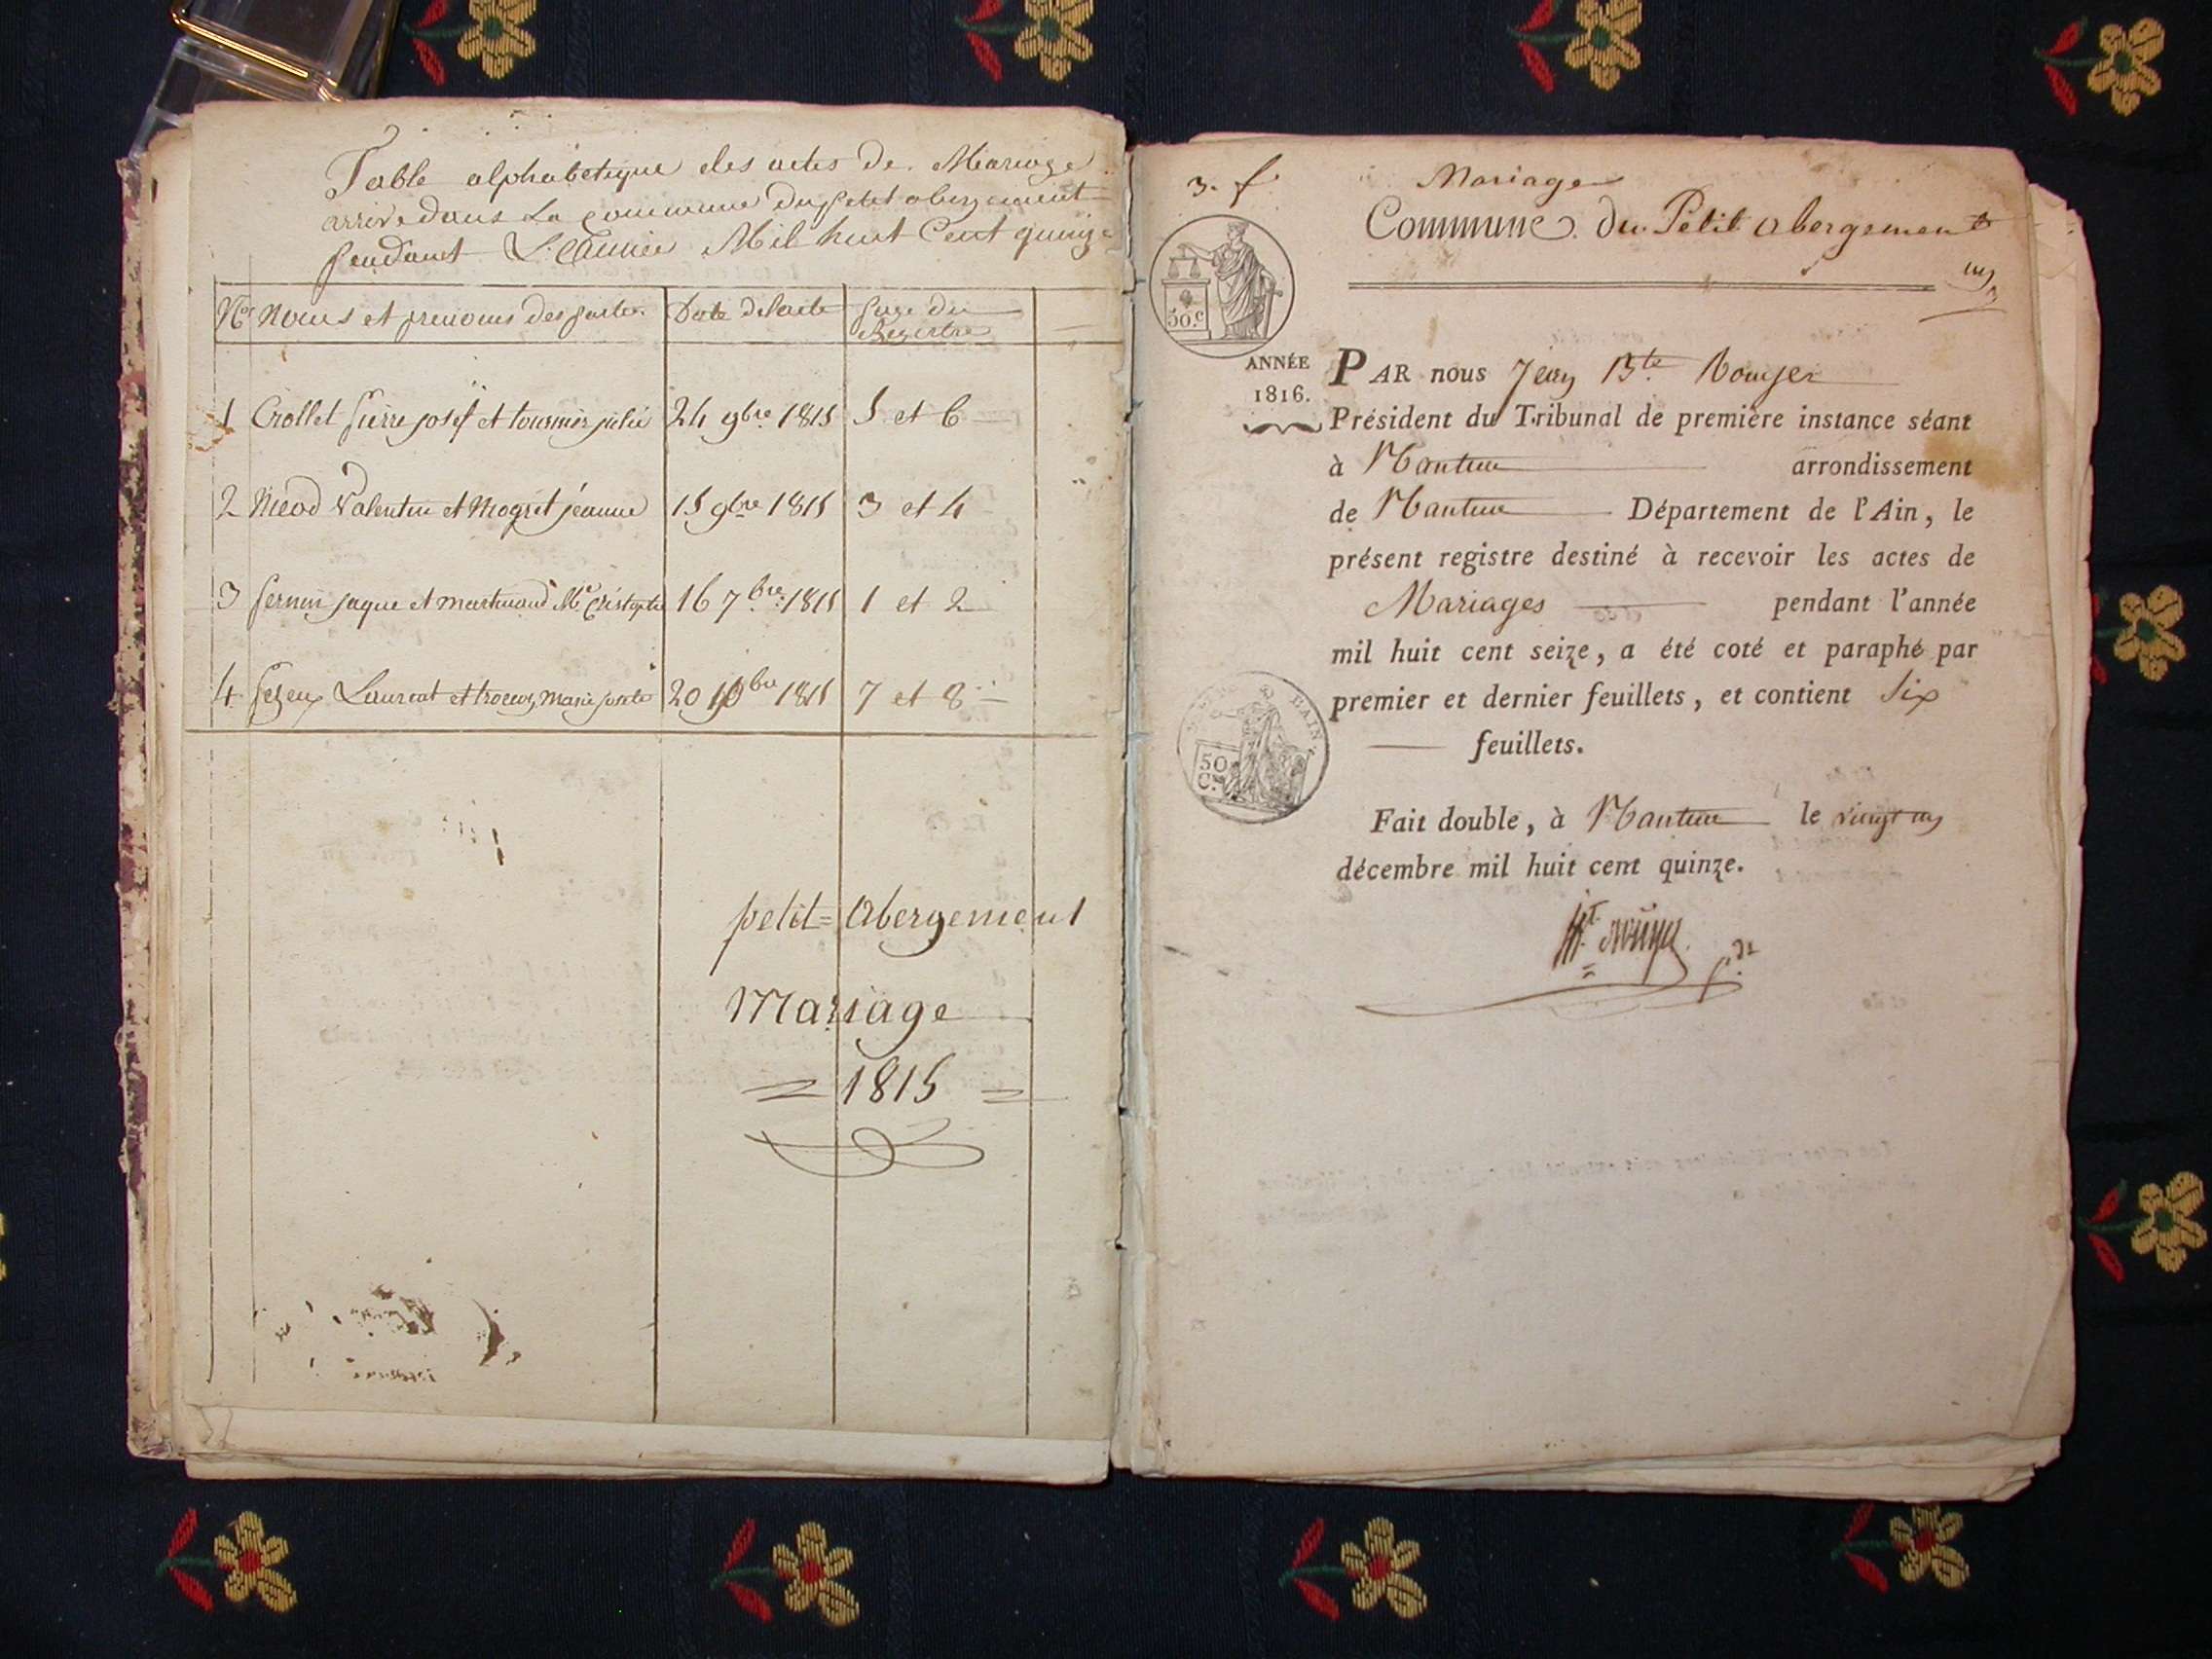 Table alphabetique des actes de Mariage
arrivé dans La Commune du petit abergement
pendant L'année Mil huit Cent quinze
Nos Noms et prenoms des parties Date de l'acte page du
Registre
1 Crollet pierre josef et tournier julie 24 9bre 1815 5 et 6
2 Nicod Valentin et Mogret jeanne 15 9bre 1815 3 et 4
3 pernin jaque et martinand Me Cristophe 16 7bre 1815 1 et 2
4 Laurent et Marie josete 20 10bre 1815 7 et 8
petit=abergement
Mariage
= 1815 =
3. f
Mariage
Commune du Petit abergement
un
50.c
ANNÉE
1816.
PAR nous Jean Bte Rouyer
Président du Tribunal de première instance séant
à Nantua arrondissement
de Nantua Département de l'Ain, le
présent registre destiné à recevoir les actes de
Mariages pendant l'année
mil huit cent seize, a été coté et paraphé par
premier et dernier feuillets, et contient Six
feuillets.
50
Cs
Fait double, à Nantua le vingt un
décembre mil huit cent quinze.